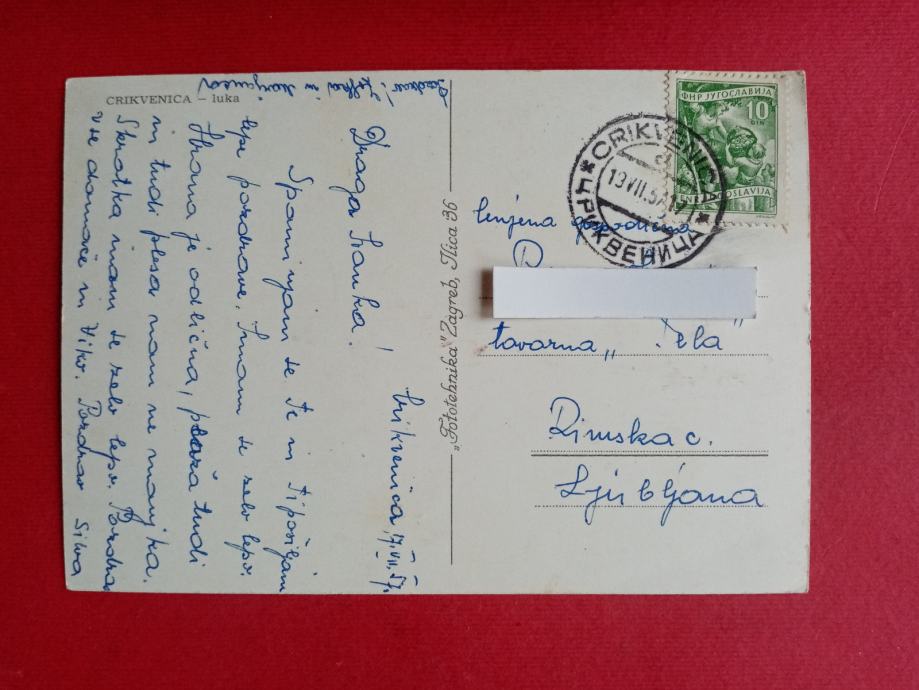 CRIKVENICA – luka
Crikvenica, 17. VII. 57.
Draga Slavka!
Spominjam se te in ti pošiljam
lepe pozdrave. Imam se zelo lepo.
Hrana je odlična, plaža tudi
in tudi plesa nam ne manjka.
Skratka imam se zelo lepo. Pozdrav
vse domače in Viko. Pozdrav Silva
"Fototehnika" Zagreb, Ilica 36
ФНР ЈУГОСЛАВИЈА
10
DIN
FNR JUGOSLAVIJA
CRIKVENICA
19.VII.57
ЦРИКВЕНИЦА
Cenjena gospodična
tovarna „ "
Rimska c.
Ljubljana